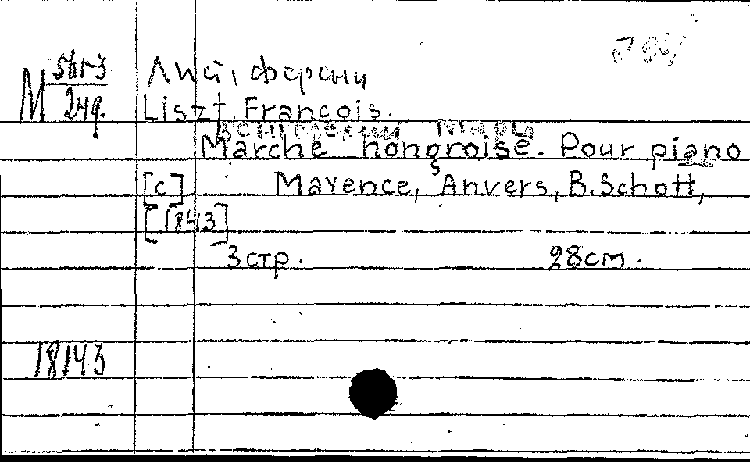 М 5613/249.
Лист, Ференц
Liszt, François.
Венгерский марш
Marche hongroise. Pour piano
[с] Mayence, Anvers, B. Schott,
[1843]
3 стр. 28 см.
18143